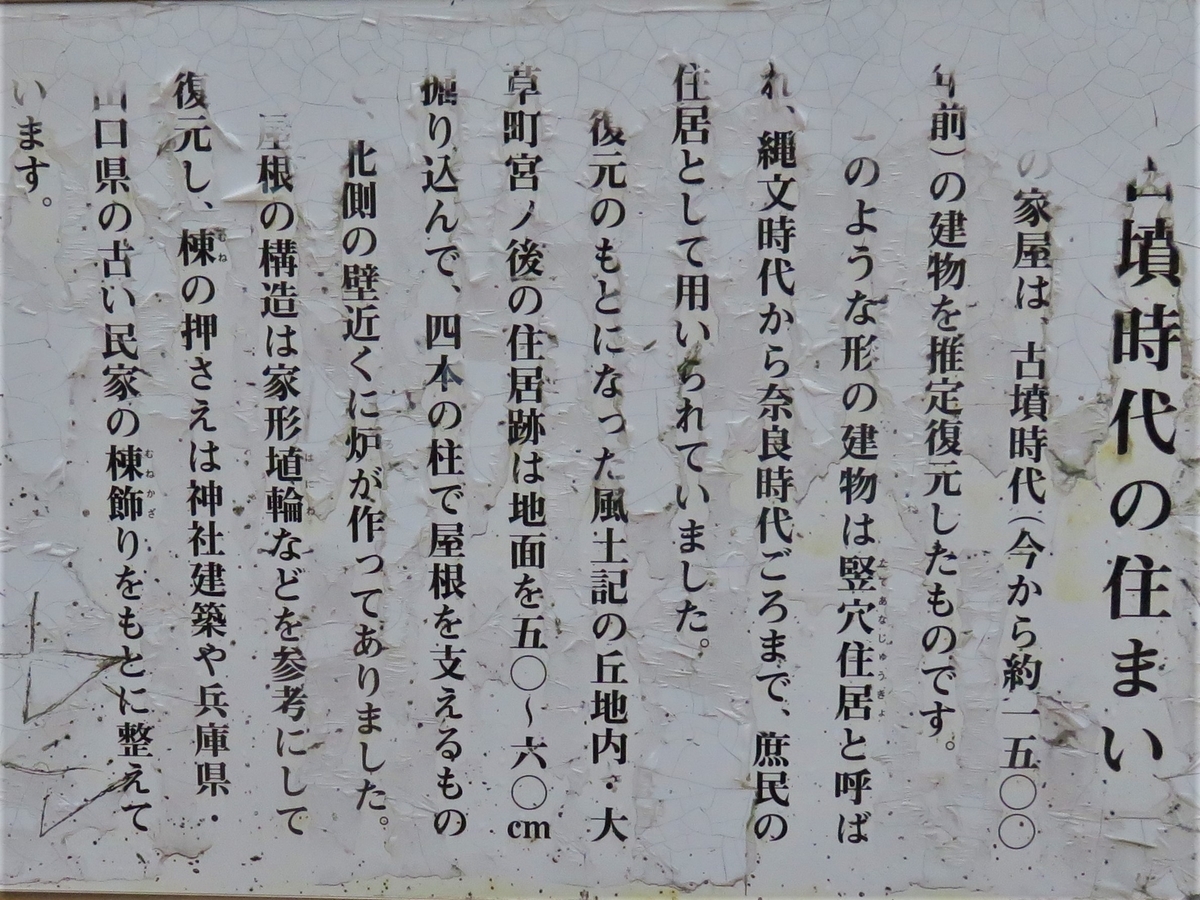 古墳時代の住まい
の家屋は、古墳時代(今から約一五〇〇
年前)の建物を推定復元したものです。
のような形の建物は竪穴住居と呼ば
れ、縄文時代から奈良時代ごろまで、庶民の
住居として用いられていました。
復元のもとになった風土記の丘地内・大
草町宮ノ後の住居跡は地面を五〇〜六〇cm
掘り込んで、四本の柱で屋根を支えるもの
、北側の壁近くに炉が作ってありました。
屋根の構造は家形埴輪などを参考にして
復元し、棟の押さえは神社建築や兵庫県・
山口県の古い民家の棟飾りをもとに整えて
います。